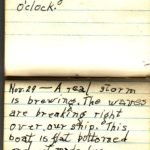 o'clock.
Nov. 29 — A real storm
is brewing. The waves
are breaking right
over our ship. This
boat is flat bottomed